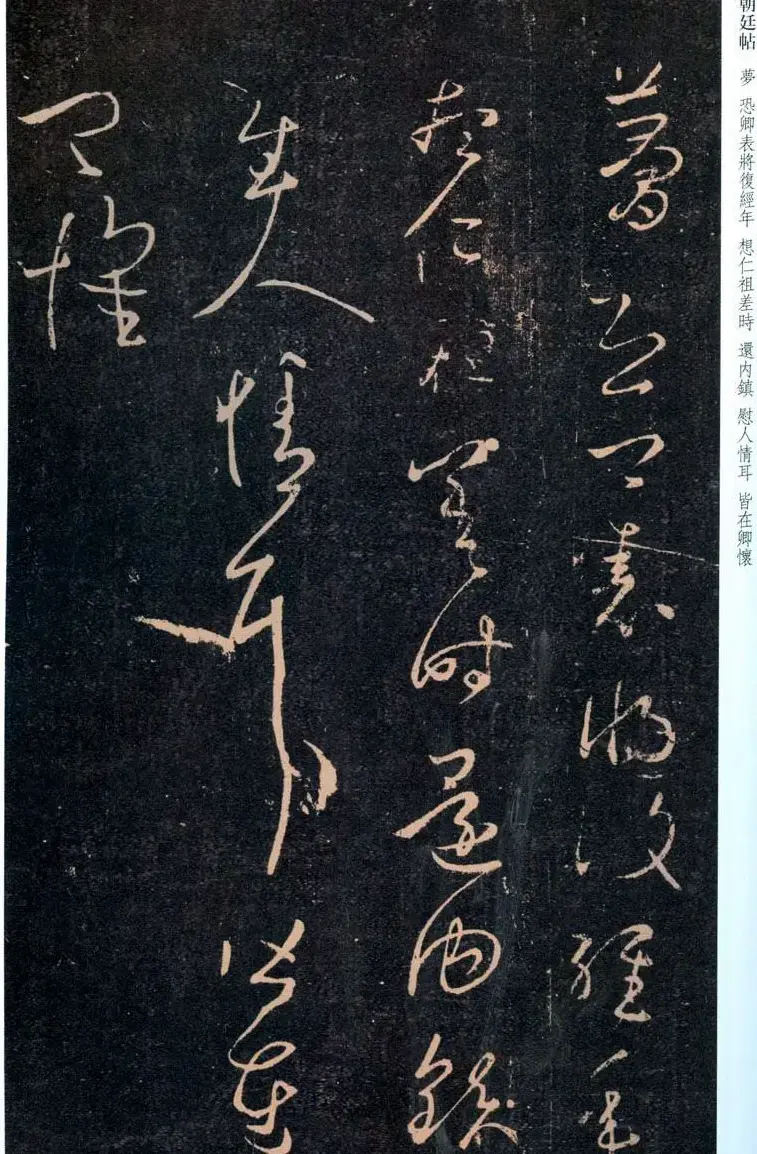 朝廷帖 夢 恐卿表將復經年 想仁祖差時 還内鎮 慰人情耳 皆在卿懷
夢恐卿表將復經年
想仁祖差時還内鎮
慰人情耳皆在
卿懷